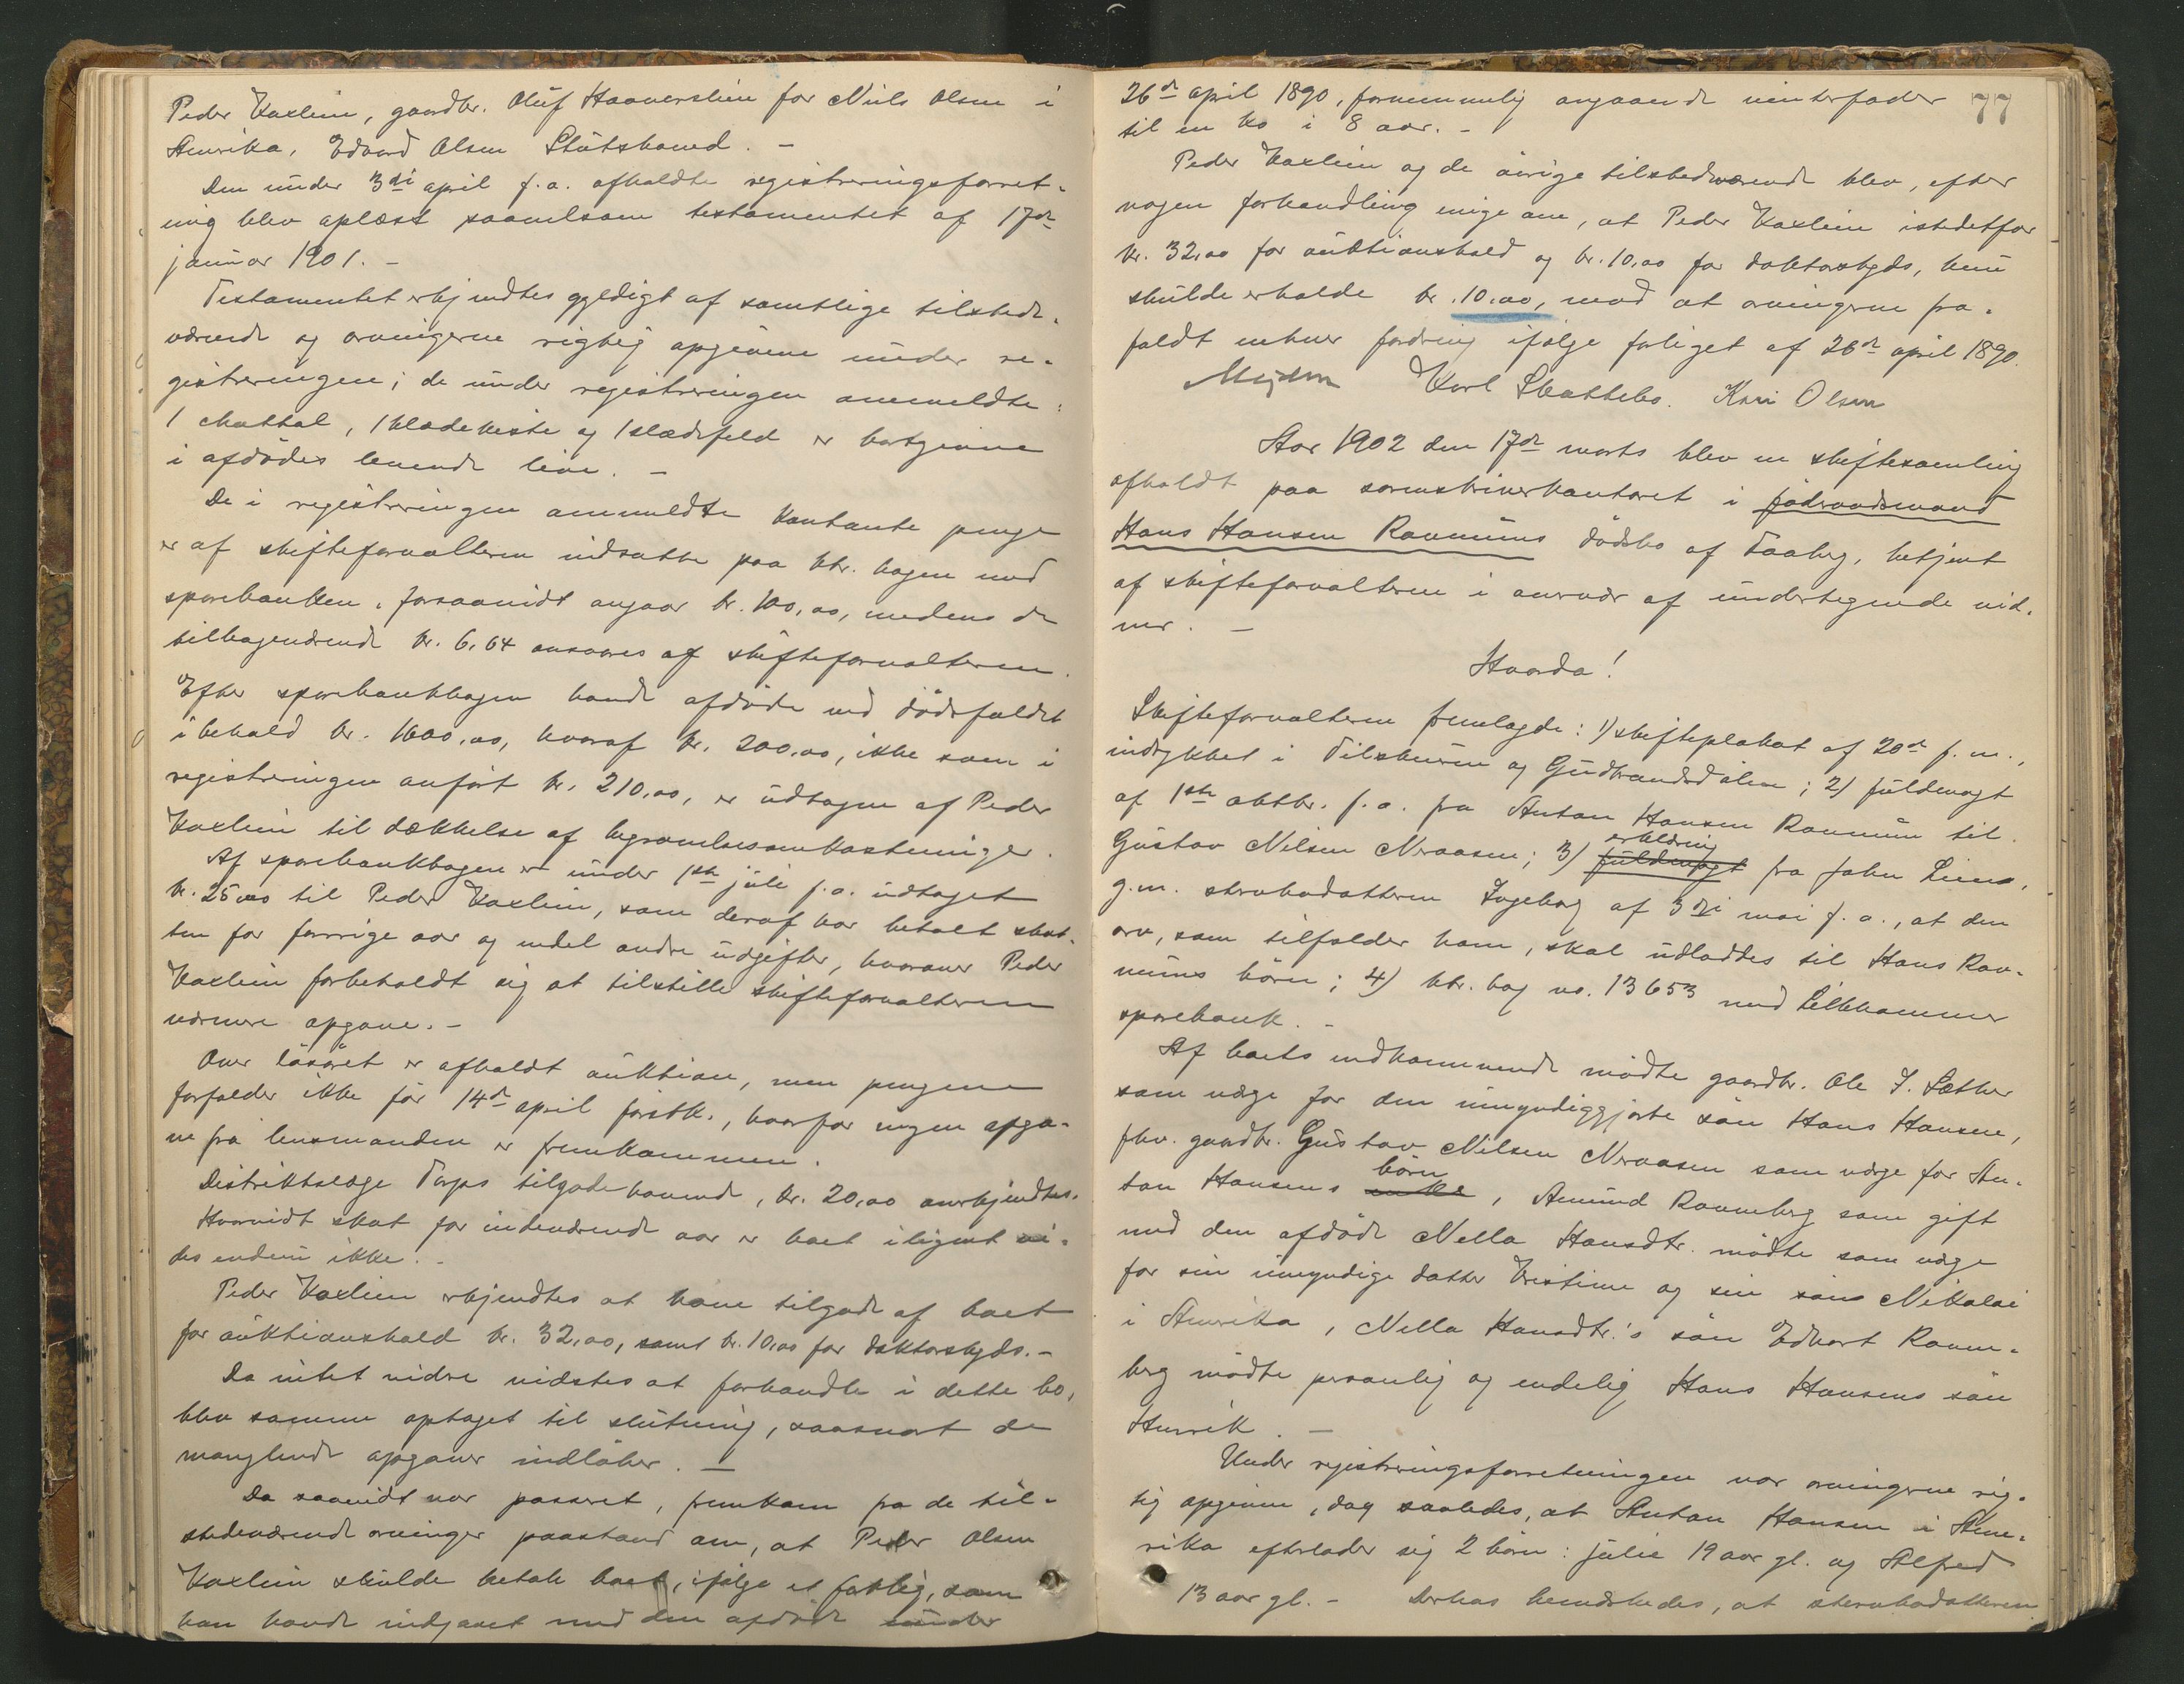 Peder Kaxlien, gaardbr. Oluf Haaverslien for Niels Olsen i
Amerika, Edvard Olsen Slutshaared. –
Den under 3die april f. a. afholdte registreringsforret-
ning blev oplæst saavelsom testamentet af 17de
januar 1901. –
Testamentet erkjendtes gyldigt af samtlige tilstede-
værende og arvingerne rigtig opgivne under re-
gistreringen; de under registreringen anmeldte:
1 chattol, 1 klædekiste og 1 slædefeld er bortgivne
i afdødes levende live. –
De i registreringen anmeldte kontante penge
er af skifteforvalteren indsatte paa ktr. bogen med
sparebanken, forsaavidt angaar kr. 100,00, medens de
tilbageværende kr. 6,64 ansvares af skifteforvalteren.
Efter sparebankbogen havde afdøde ved dødsfaldet
i behold kr. 1600,00, hvoraf kr. 200,00, ikke som i
registreringen anført kr. 210,00, er udtagen af Peder
Kaxlien til dækkelse af begravelsesomkostninger.
Af sparebankbogen er under 1ste juli f. a. udtaget
kr. 25,00 til Peder Kaxlien, som deraf har betalt skat-
ten for forrige aar og endel andre udgifter, hvorover Peder
Kaxlien forbeholdt sig at tilstille skifteforvalteren
nærmere opgave. –
Over løsøret er afholdt auktion, men pengene
forfalder ikke før 14de april førstk., hvorfor ingen opga-
ve fra lensmanden er fremkommen.
Distriktslæge Torps tilgodehavende, kr. 20,00 anerkjendtes.
Hvorvidt skat for indeværende aar er boet ilignet vi-
des endnu ikke. –
Peder Kaxlien erkjendtes at have tilgode af boet
for auktionshold kr. 32,00, samt kr. 10,00 for doktorskyds. –
Da intet videre vidstes at forhandle i dette bo,
blev samme optaget til slutning, saasnart de
manglende opgaver indløber. –
Da saavidt var passeret, fremkom fra de til-
stedeværende arvinger paastand om, at Peder Olsen
Kaxlien skulde betale boet, ifølge et forlig, som
han havde indgaaet med den afdøde under
77
26de april 1890, fornemmelig angaaende vinterfoder
til en ko i 8 aar. –
Peder Kaxlien og de øvrige tilstedeværende blev, efter
nogen forhandling enige om, at Peder Kaxlien istedetfor
kr. 32,00 for auktionshold og kr. 10,00 for doktorskyds, kun
skulde erholde kr. 10,00, mod at arvingerne fra-
faldt enhver fordring ifølge forliget af 26de april 1890.
Karl Skattebo. Kari Olsen
Aar 1902 den 17de marts blev en skiftesamling
afholdt paa sorenskriverkontoret i føderaadsmand
Hans Hansen Ravnums dødsbo af Faaberg, betjent
af skifteforvalteren i overvær af undertegnede vid-
ner. –
Hvorda!
Skifteforvalteren fremlagde: 1) skifteplakat af 20de f. m.,
indrykket i Tilskueren og Gudbrandsdølen; 2) fuldmagt
af 1ste oktbr. f. a. fra Anton Hansen Ravnum til
Gustav Nilsen Nervaasen; 3) erklæring fuldmagt fra John Lien,
g. m. stervbodatteren Ingeborg af 3die mai f. a., at den
arv, som tilfalder ham, skal udloddes til Hans Rav-
nums børn; 4) ktr. bog no. 13653 med Lillehammer
sparebank. –
Af boets vedkommende mødte gaardbr. Ole J. Sæther
som verge for den umyndiggjorte søn Hans Hansen,
fhv. gaardbr. Gustav Nilsen Nervaasen som verge for An-
ton Hansens børn enke, Amund Ravnberg som gift
med den afdøde Nella Hansdtr. mødte som verge
for sin umyndige datter Kristine og sin søn Nikolai
i Amerika, Nella Hansdtr.'s søn Edvart Ravn-
berg mødte personlig og endelig Hans Hansens søn
Henrik. –
Under registreringsforretningen var arvingerne rig-
tig opgivne, dog saaledes, at Anton Hansen i Ame-
rika efterlader sig 2 børn: Julie 19 aar gl. og Alfred
13 aar gl. – Derhos bemærkedes, at stervbodatteren